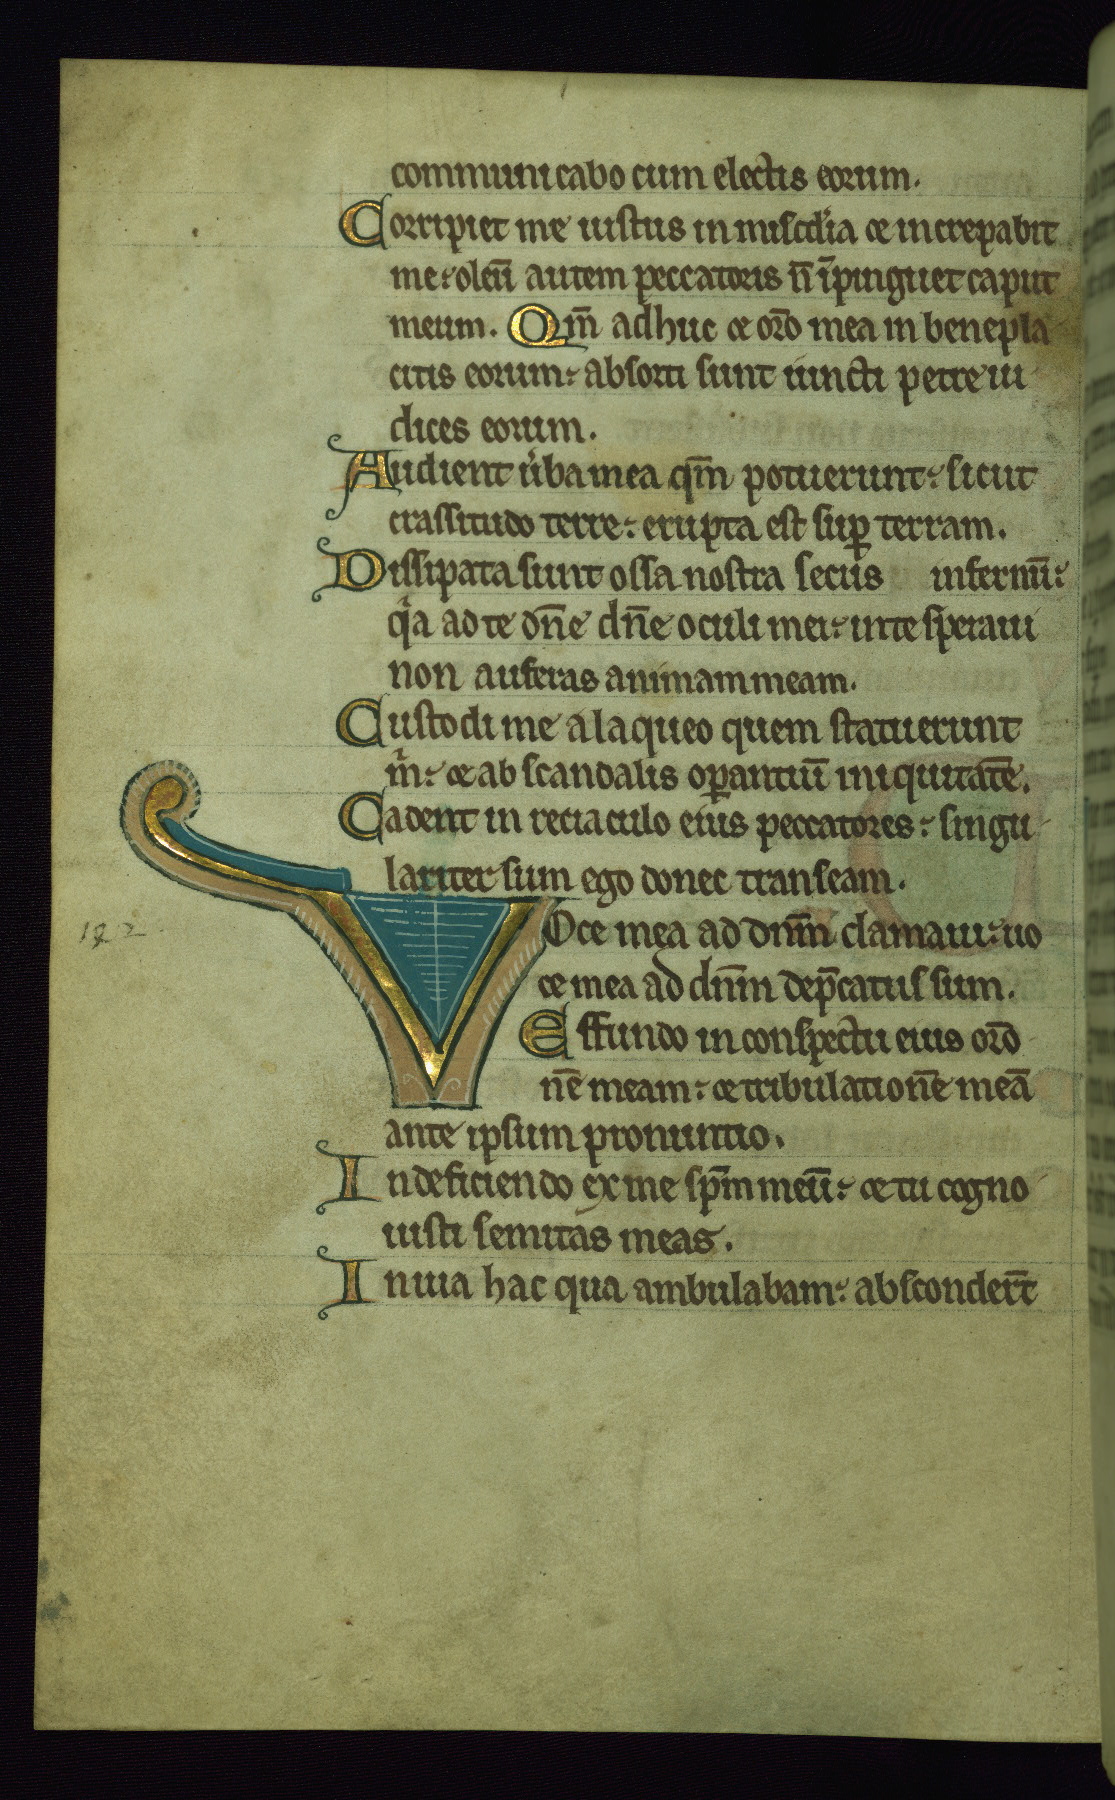 communicabo cum electis eorum.
Corripiet me iustus in misc̄dia et increpabit
me: oleū autem peccatoris n̄ īpinguet caput
meum. Qm̄ adhuc et orō mea in benepla
citis eorum: absorti sunt iuncti petre iu
dices eorum.
Audient ũba mea qm̄ potuerunt: sicut
crassitudo terre: erupta est suꝑ terram.
Dissipata sunt ossa nostra secus infernū:
qͥa ad te dn̄e dn̄e oculi mei: in te speraui
non auferas animam meam.
Custodi me a laqueo quem statuerunt
mͥ: et ab scandalis oꝑantiū iniquitatē.
Cadent in retiaculo eius peccatores: singu
lariter sum ego donec transeam.
Voce mea ad dnm̄ clamaui: uo
ce mea ad dnm̄ dep̄catus sum.
Effundo in conspectu eius orō
nē meam: et tribulationē meā
ante ipsum pronuntio.
In deficiendo ex me sp̄m meū: et tu cogno
uisti semitas meas.
In uia hac qua ambulabam: absconder̄t